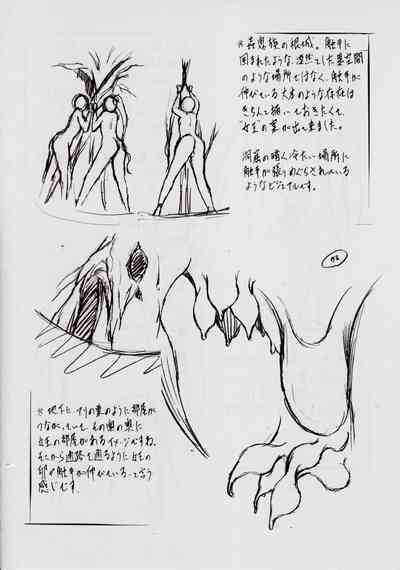 ※蟲惑領の根城。触手に
囲まれたような、漠然とした空間
のような場所ではなく、触手が
伸びている大木のような存在は
きちんと描いておきたくて、
の案が出て来ました。
洞窟の暗く冷たい場所に
触手が張りめぐらされている
ようなビジュアルです。
02
※地下に、アリの巣のように部屋が
つながっていて、その奥の奥に
の部屋があるイメージですね。
そこから通路を通るように
触手が伸びている、って言う
感じです。